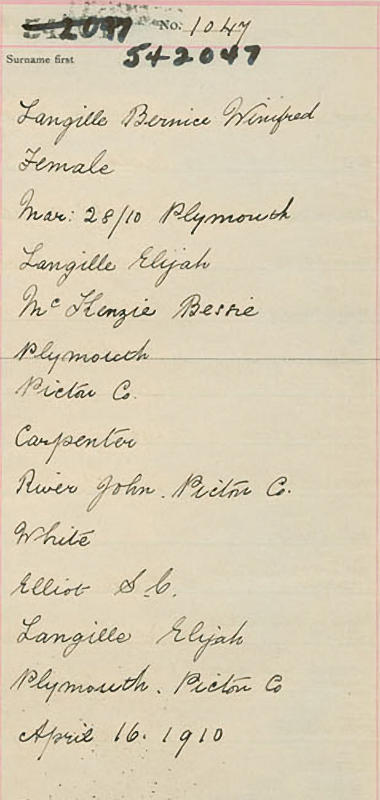 2047 No. 1047
Surname first 542047
Langille Bernice Winifred
Female
Mar: 28/10 Plymouth
Langille Elijah
Mc Kenzie Bessie
Plymouth
Pictou Co.
Carpenter
River John. Pictou Co.
White
Elliot S.C.
Langille Elijah
Plymouth. Pictou Co
April 16. 1910